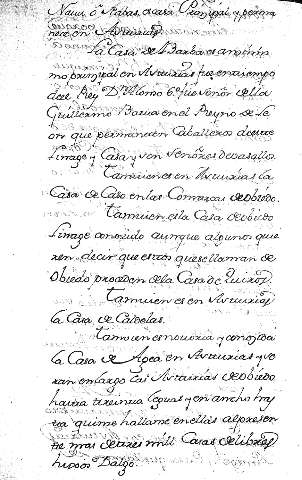 Navia o Nabas es casa Principal y permane
nece en Asturias
la Casa de la Barba es asimis
mo principal en Asturias fue en tiempo
del Rey Dn Alonso 6º fue Señor de ella
Guillermo Barua en el Reyno de Le
on que permanecen Caballeros de este
linage y Casa y son Señores de vasallos
tamuien es en Asturias la
Casa de Caso en las Comarcas de obiedo
tamuien es la Casa de obiedo
linage conocido aunque algunos quie
ren decir que estos que se llaman de
Obiedo proceden de la Casa de Quiros
tamuien es en Asturias
la Casa de Caldelas
tamuien es notoria y conocida
la Casa de Agea en Asturias y se
ran en largo las Asturias de obiedo
hasta treinta leguas y en ancho
que me hallarse en ellas al presen
te mas de tres mill Casas de
hijos Dalgo